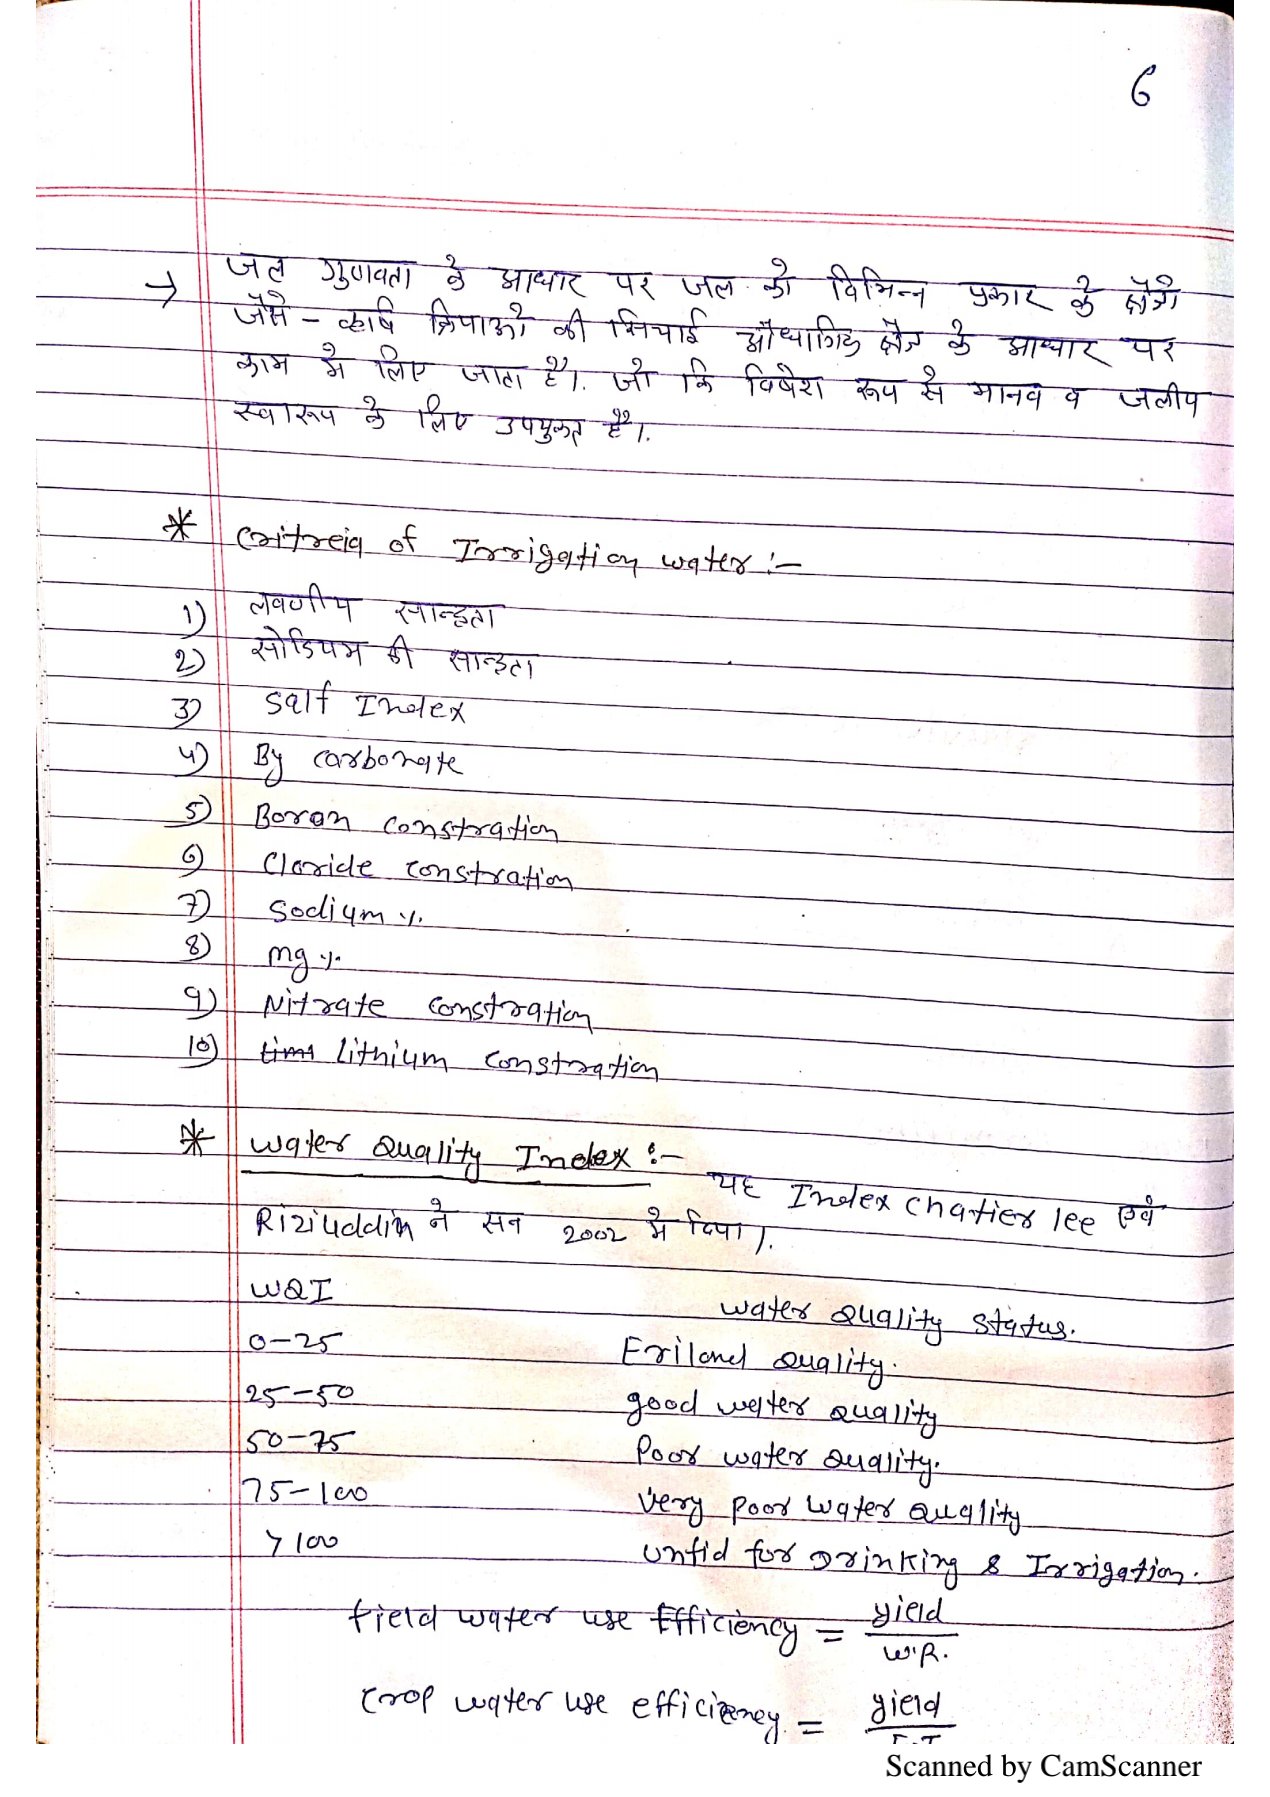 6
→ जल गुणवता के आधार पर जल को विभिन्न प्रकार के क्षैत्रो
जैसे - कार्षि क्रियाओ की सिचाई औध्यागिक क्षैत्र के आधार पर
काम मे लिए जाता है। जो कि विषेश रूप से मानव व जलीय
स्वारूप के लिए उपयुक्त है।
* Critreia of Irrigation water :-
1) लवणीय सान्द्रता
2) सोडियम की सान्द्रता
3) Salf Index
4) By carbonate
5) Boron constration
6) Cloride constration
7) Sodium %.
8) mg %.
9) Nitrate constration
10) lithium constration
* Water Quality Index :- यह Index Chatier lee एवं
Riziuddin ने सन 2002 मे दिया।
WQI Water Quality Status.
0-25 Eriland Quality.
25-50 good water quality
50-75 Poor water Quality.
75-100 very poor water quality
>100 unfid for Drinking & Irrigation.
field water use Efficiency = yield / W.R.
Crop water use efficiency = yield
Scanned by CamScanner